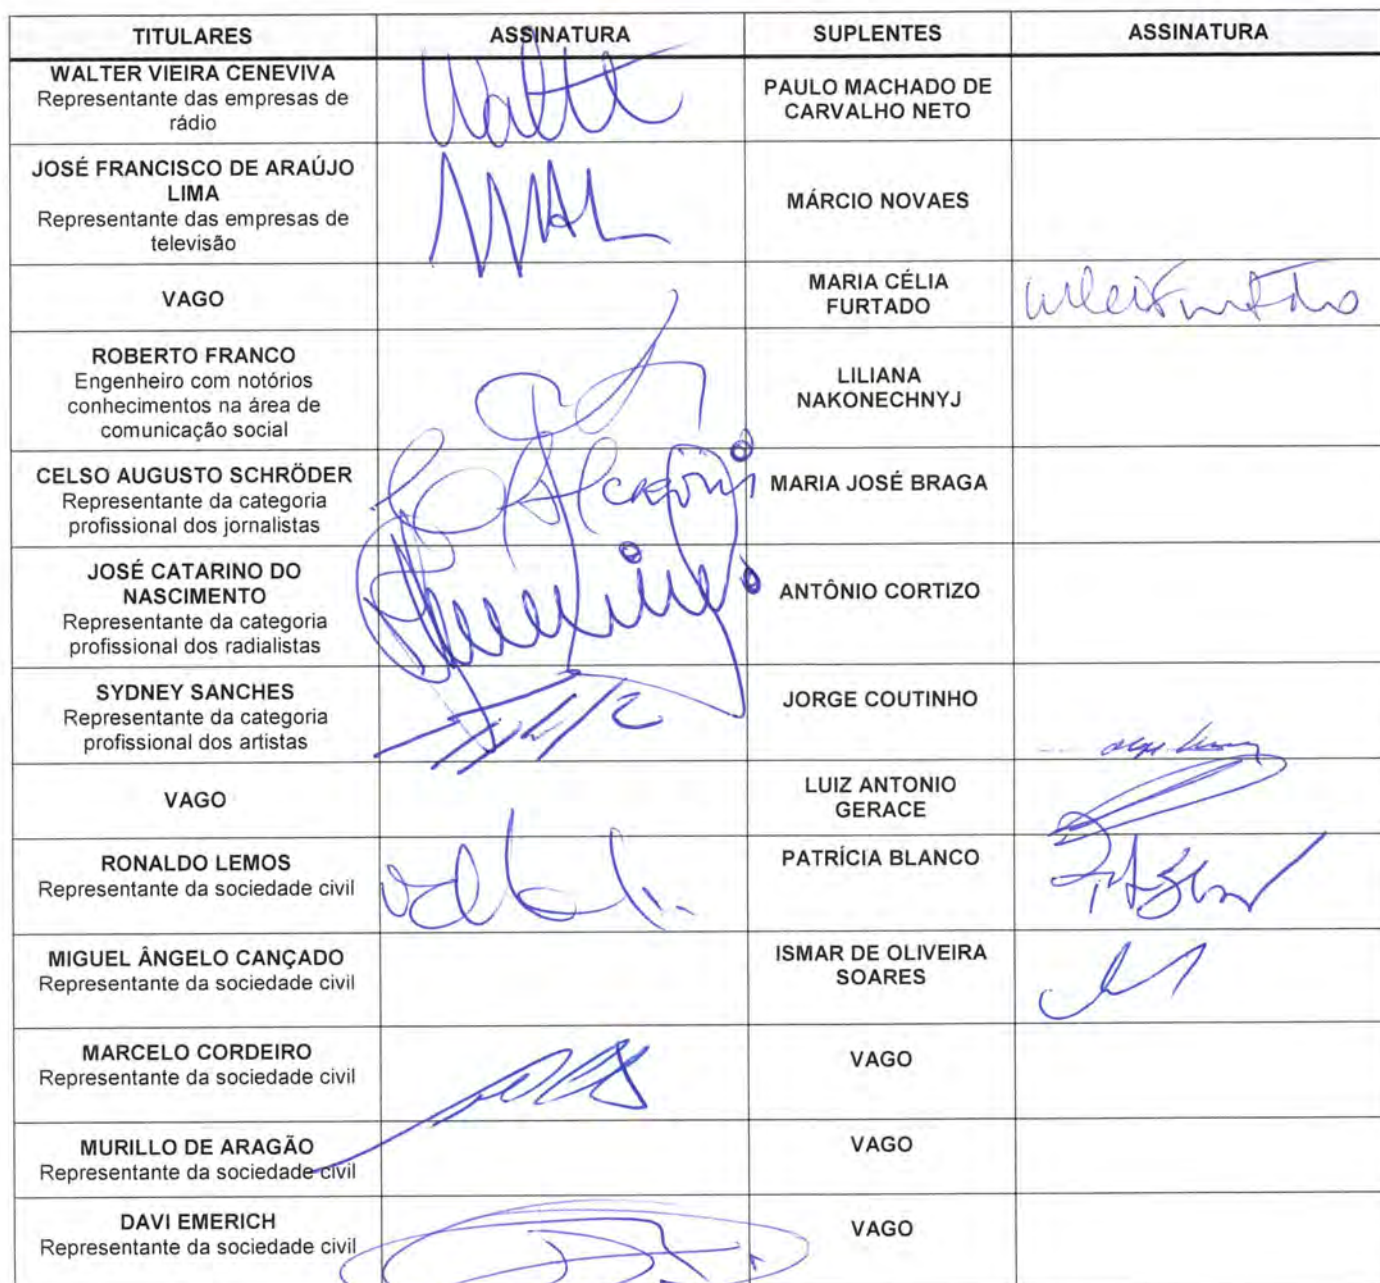 TITULARES ASSINATURA SUPLENTES ASSINATURA
WALTER VIEIRA CENEVIVA
Representante das empresas de
rádio
Walter
PAULO MACHADO DE
CARVALHO NETO
JOSÉ FRANCISCO DE ARAÚJO
LIMA
Representante das empresas de
televisão
MÁRCIO NOVAES
VAGO
MARIA CÉLIA
FURTADO
ROBERTO FRANCO
Engenheiro com notórios
conhecimentos na área de
comunicação social
LILIANA
NAKONECHNYJ
CELSO AUGUSTO SCHRÖDER
Representante da categoria
profissional dos jornalistas
MARIA JOSÉ BRAGA
JOSÉ CATARINO DO
NASCIMENTO
Representante da categoria
profissional dos radialistas
ANTÔNIO CORTIZO
SYDNEY SANCHES
Representante da categoria
profissional dos artistas
JORGE COUTINHO
VAGO
LUIZ ANTONIO
GERACE
RONALDO LEMOS
Representante da sociedade civil
PATRÍCIA BLANCO
MIGUEL ÂNGELO CANÇADO
Representante da sociedade civil
ISMAR DE OLIVEIRA
SOARES
MARCELO CORDEIRO
Representante da sociedade civil
VAGO
MURILLO DE ARAGÃO
Representante da sociedade civil
VAGO
DAVI EMERICH
Representante da sociedade civil
VAGO